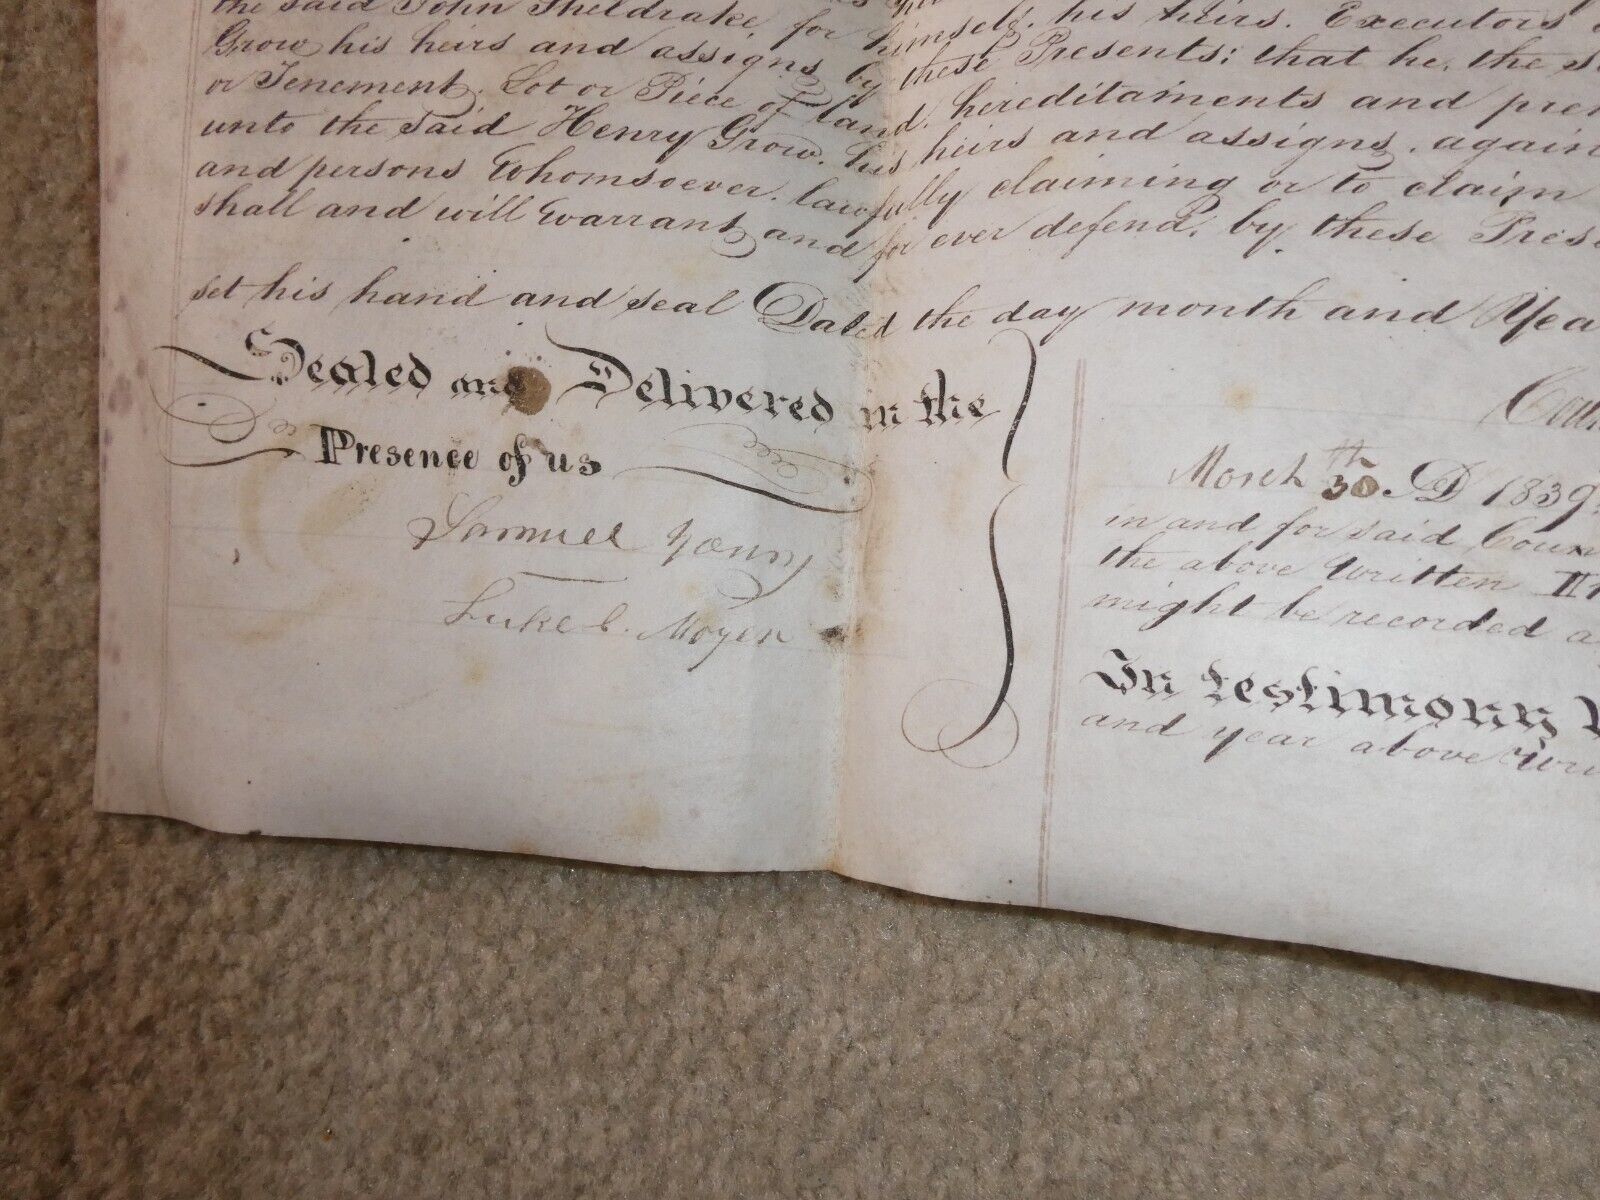 the said John Sheldrake, for himself, his heirs. Executors
Grow his heirs and assigns by these Presents; that he, the
or Tenement, Lot or Piece of land, hereditaments and
unto the said Henry Grow, his heirs and assigns, again
and persons Whomsoever, lawfully claiming or to claim
shall and will warrant and for ever defend, by these
set his hand and seal Dated the day month and Yea
Sealed and Delivered in the
Presence of us
Samuel Young
Luke C. Moyer
March 30th AD 1839
in and for said Coun
the above written
might be recorded a
In testimony
and year above